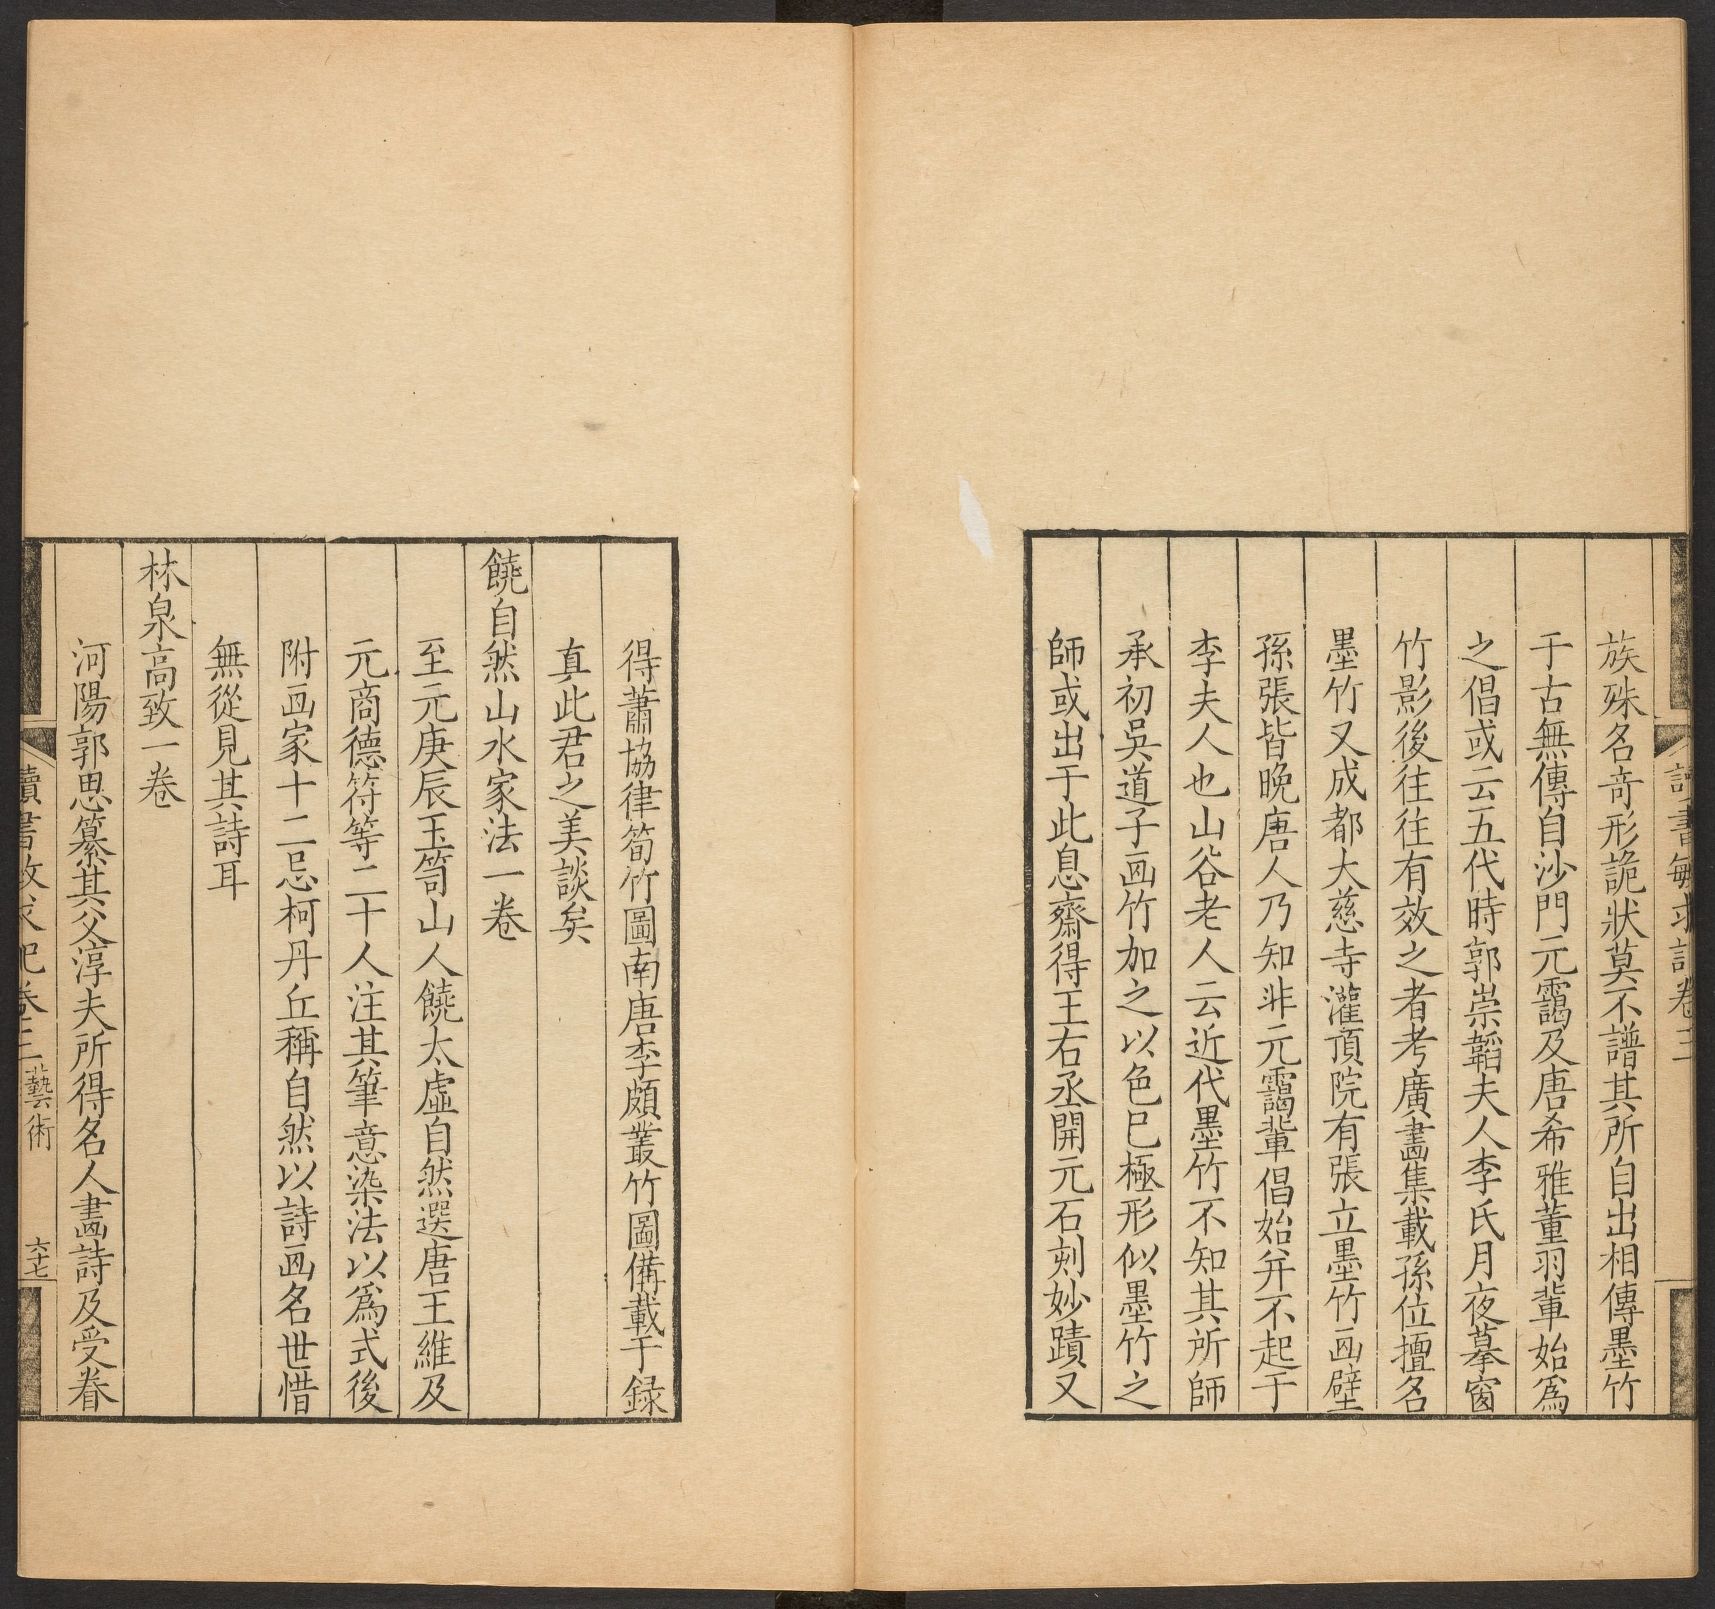 族殊名奇形詭狀莫不譜其所自出相傳墨竹
于古無傳自沙門元靄及唐希雅董羽輩始爲
之倡或云五代時郭崇韜夫人李氏月夜摹窗
竹影後往往有效之者考廣畫集載孫位擅名
墨竹又成都大慈寺灌頂院有張立墨竹画壁
孫張皆晚唐人乃知非元靄輩倡始并不起于
李夫人也山谷老人云近代墨竹不知其所師
承初吳道子画竹加之以色已極形似墨竹之
師或出于此息齋得王右丞開元石刻妙蹟又
得蕭協律筍竹圖南唐李頗叢竹圖備載于録
真此君之美談矣
饒自然山水家法一卷
至元庚辰玉笥山人饒太虛自然選唐王維及
元商德符等二十人注其筆意染法以爲式後
附画家十二忌柯丹丘稱自然以詩画名世惜
無從見其詩耳
林泉高致一卷
河陽郭思纂其父淳夫所得名人畵詩及受眷
讀書敏求記卷三 藝術 六十七